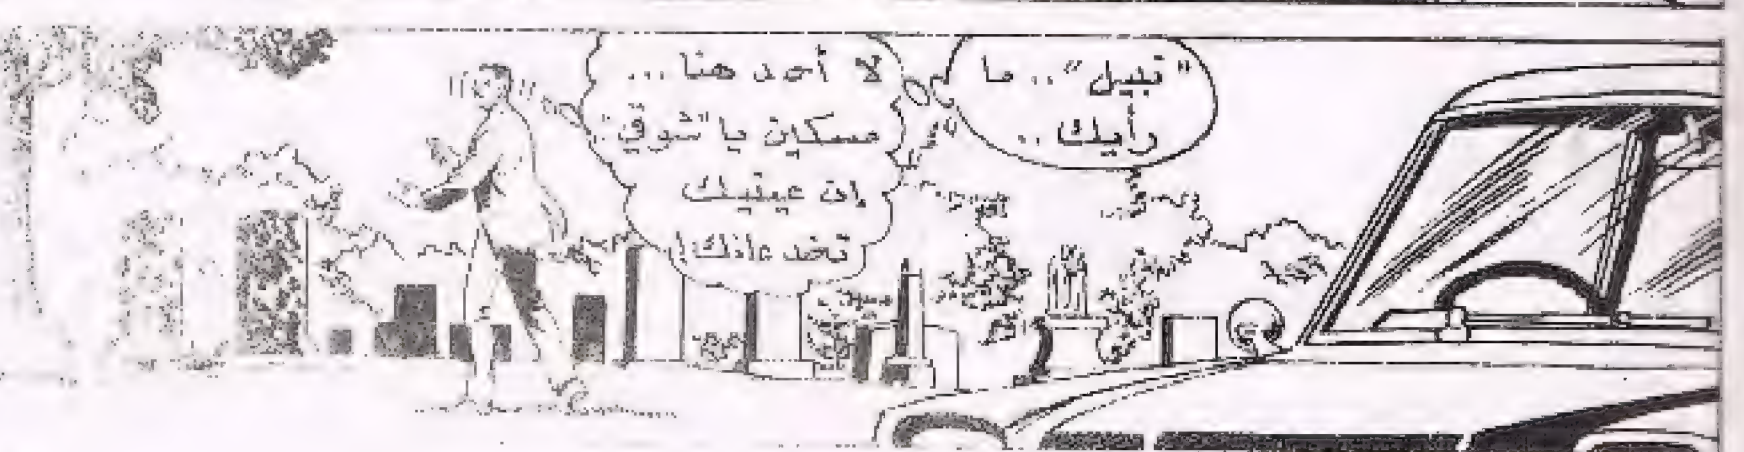 "نبيل".. ما
رأيك..
لا أحد هنا...
مسكين يا "شوقي"
إن عينيك
تخدعانك!